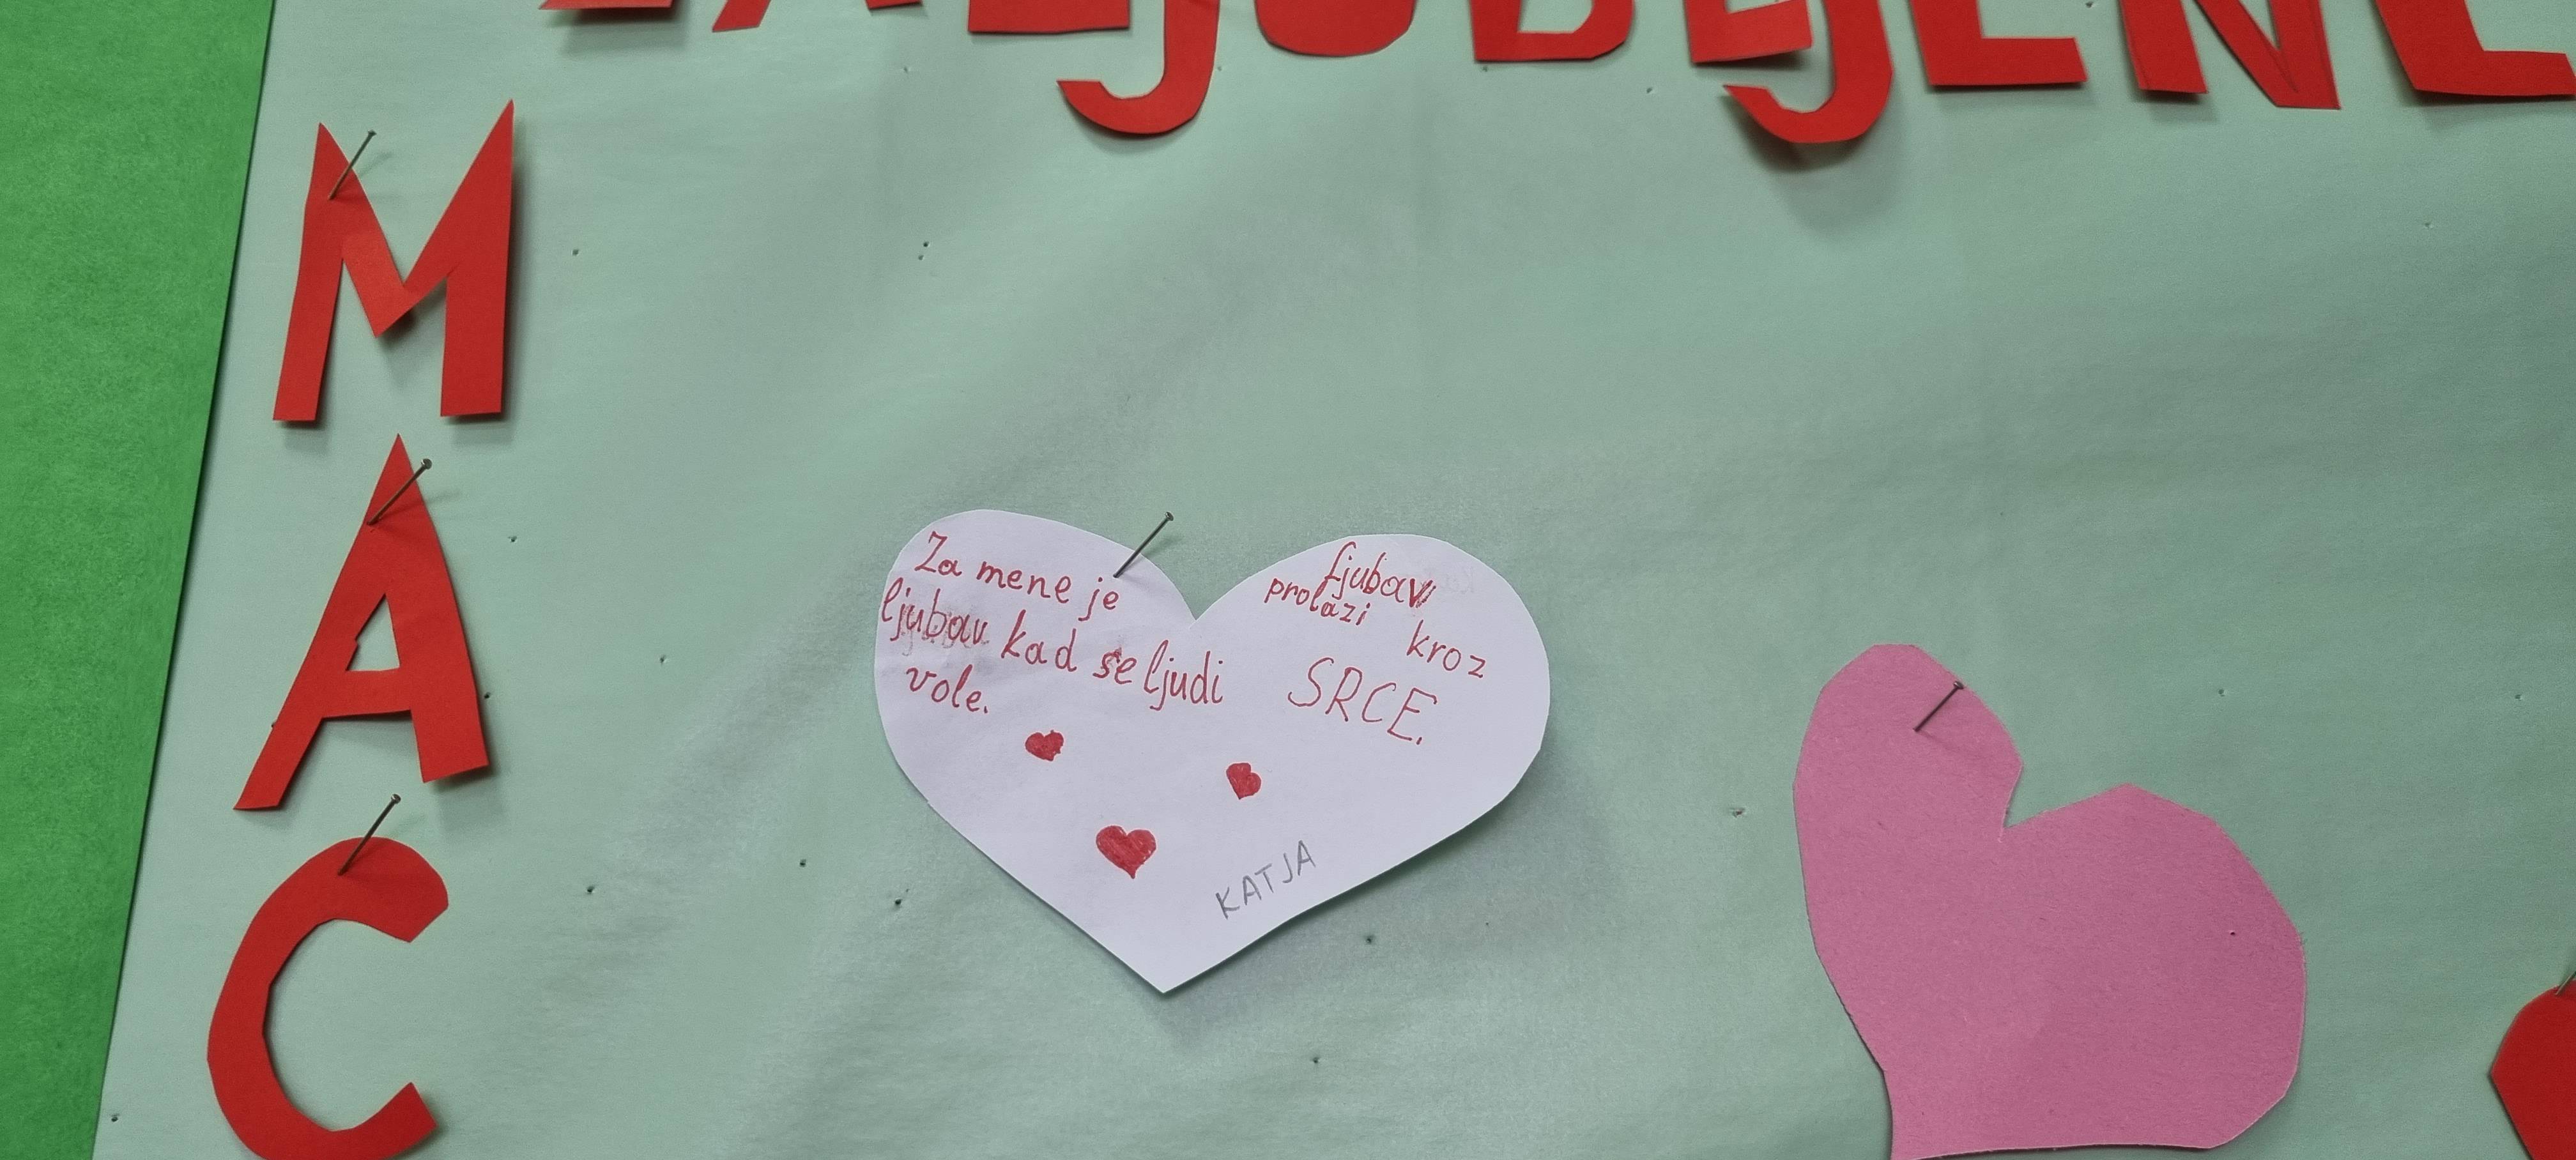 ZALJUBLJENE
M
A
C
Za mene je
ljubav kad se ljudi
vole.
ljubav
prolazi
kroz
SRCE.
KATJA